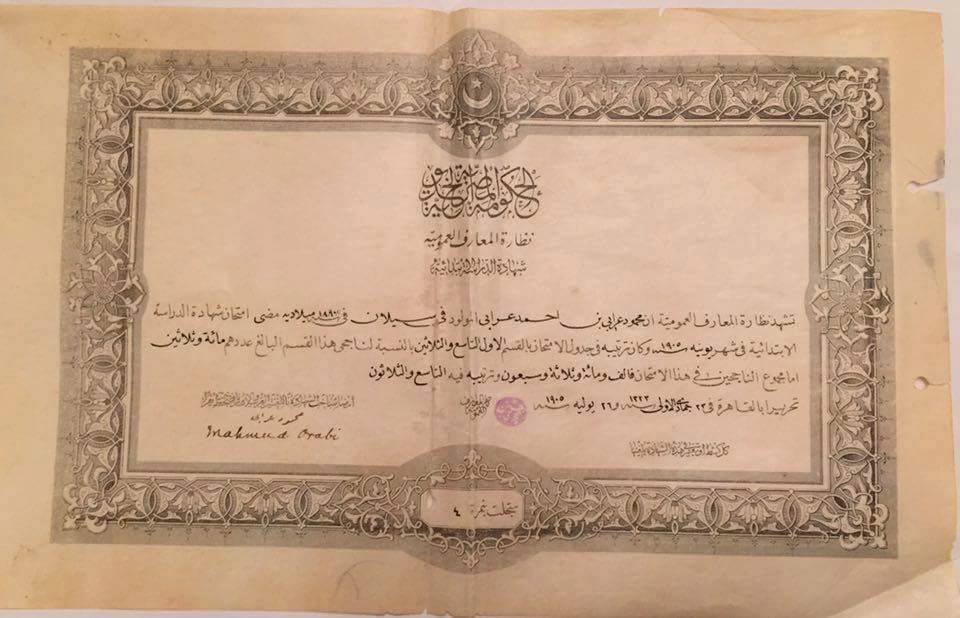 الحكومة المصرية الخديوية
نظارة المعارف العمومية
شهادة الدراسة الابتدائية
تشهد نظارة المعارف العمومية ان محمود عرابى بن احمد عرابى المولود فى سيلان فى سنة ١٨٩٠ ميلادية مضى امتحان شهادة الدراسة
الابتدائية فى شهر يونيه سنة ١٩٠٥ وكان ترتيبه فى جدول الامتحان بالقسم الاول التاسع والثلاثين بالنسبة لناجحى هذا القسم البالغ عددهم مائة وثلاثين
اما مجموع الناجحين فى هذا الامتحان فالف ومائة وثلاثة وسبعون وترتيبه فيه التاسع والثلاثون
تحريرا بالقاهرة فى ٢٣ جمادى الاولى سنة ١٣٢٣ و٢٦ يوليه سنة ١٩٠٥
امضاء صاحب الشهادة
محمود عرابى
Mahmud Orabi
كل كشط او تغيير فى هذه الشهادة يلغيها
سجلت نمرة ٤